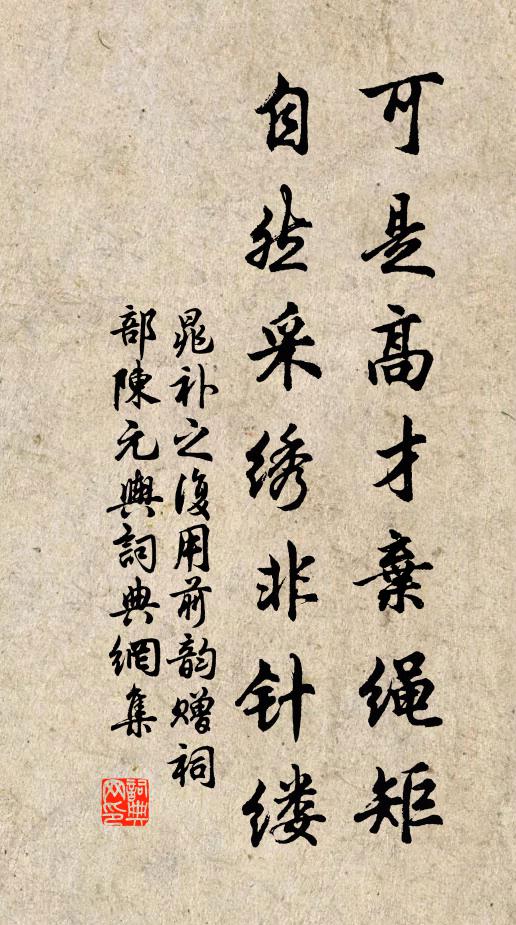 可是高才棄绳矩
自然采绣非针缕
晁补之復用前韵赠祠
部陳元輿詞典網集
詞典
网印